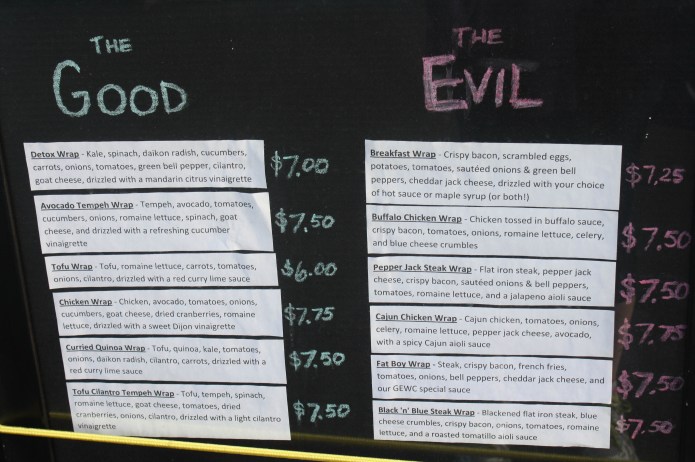 THE
GOOD
Detox Wrap - Kale, spinach, daikon radish, cucumbers,
carrots, onions, tomatoes, green bell pepper, cilantro,
goat cheese, drizzled with a mandarin citrus vinaigrette
$7.00
Avocado Tempeh Wrap - Tempeh, avocado, tomatoes,
cucumbers, onions, romaine lettuce, spinach, goat
cheese, and drizzled with a refreshing cucumber
vinaigrette
$7.50
Tofu Wrap - Tofu, romaine lettuce, carrots, tomatoes,
onions, cilantro, drizzled with a red curry lime sauce
$6.00
Chicken Wrap - Chicken, avocado, tomatoes, onions,
cucumbers, goat cheese, dried cranberries, romaine
lettuce, drizzled with a sweet Dijon vinaigrette
$7.75
Curried Quinoa Wrap - Tofu, quinoa, kale, tomatoes,
onions, daikon radish, cilantro, carrots, drizzled with a
red curry lime sauce
$7.50
Tofu Cilantro Tempeh Wrap - Tofu, tempeh, spinach,
romaine lettuce, goat cheese, tomatoes, dried
cranberries, onions, cilantro, drizzled with a light cilantro
vinaigrette
$7.50
THE
EVIL
Breakfast Wrap - Crispy bacon, scrambled eggs,
potatoes, tomatoes, sautéed onions & green bell
peppers, cheddar jack cheese, drizzled with your choice
of hot sauce or maple syrup (or both!)
$7.25
Buffalo Chicken Wrap - Chicken tossed in buffalo sauce,
crispy bacon, tomatoes, onions, romaine lettuce, celery,
and blue cheese crumbles
$7.50
Pepper Jack Steak Wrap - Flat iron steak, pepper jack
cheese, crispy bacon, sautéed onions & bell peppers,
tomatoes, romaine lettuce, and a jalapeno aioli sauce
$7.50
Cajun Chicken Wrap - Cajun chicken, tomatoes, onions,
celery, romaine lettuce, pepper jack cheese, avocado,
with a spicy Cajun aioli sauce
$7.75
Fat Boy Wrap - Steak, crispy bacon, french fries,
tomatoes, onions, bell peppers, cheddar jack cheese, and
our GEWC special sauce
$7.50
Black 'n' Blue Steak Wrap - Blackened flat iron steak, blue
cheese crumbles, crispy bacon, onions, tomatoes, romaine
lettuce, and a roasted tomatillo aioli sauce
$7.50